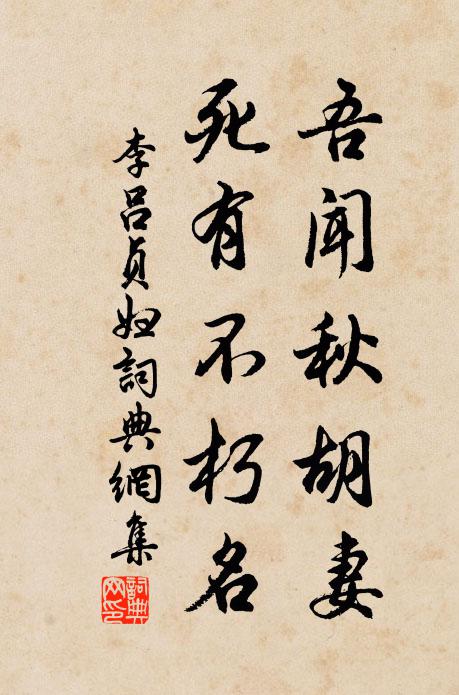 吾聞秋胡妻
死有不朽名
李呂貞妇詞典網集
詞典网印